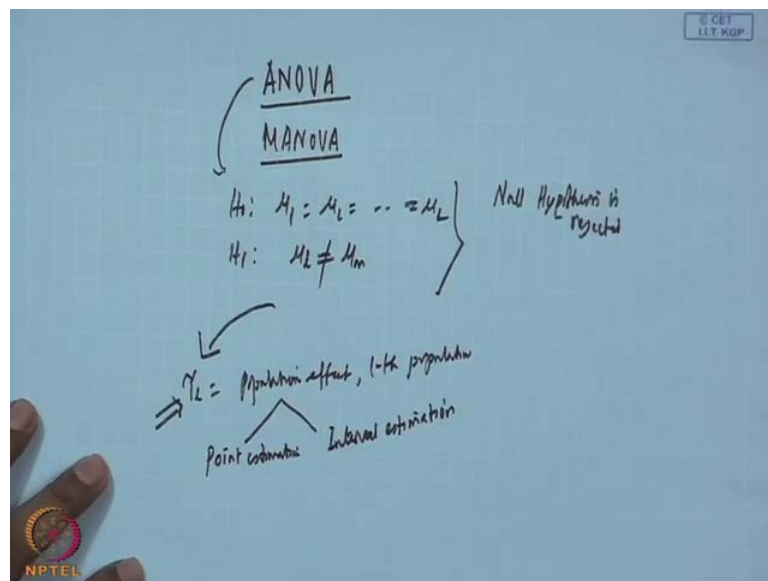 © CET
I.I.T. KGP
ANOVA
MANOVA
H0: μ1 = μ2 = .. = μL
H1: μl ≠ μm
Null Hypothesis is
rejected
τl = Population effect, l-th population
Point estimation
Interval estimation
NPTEL